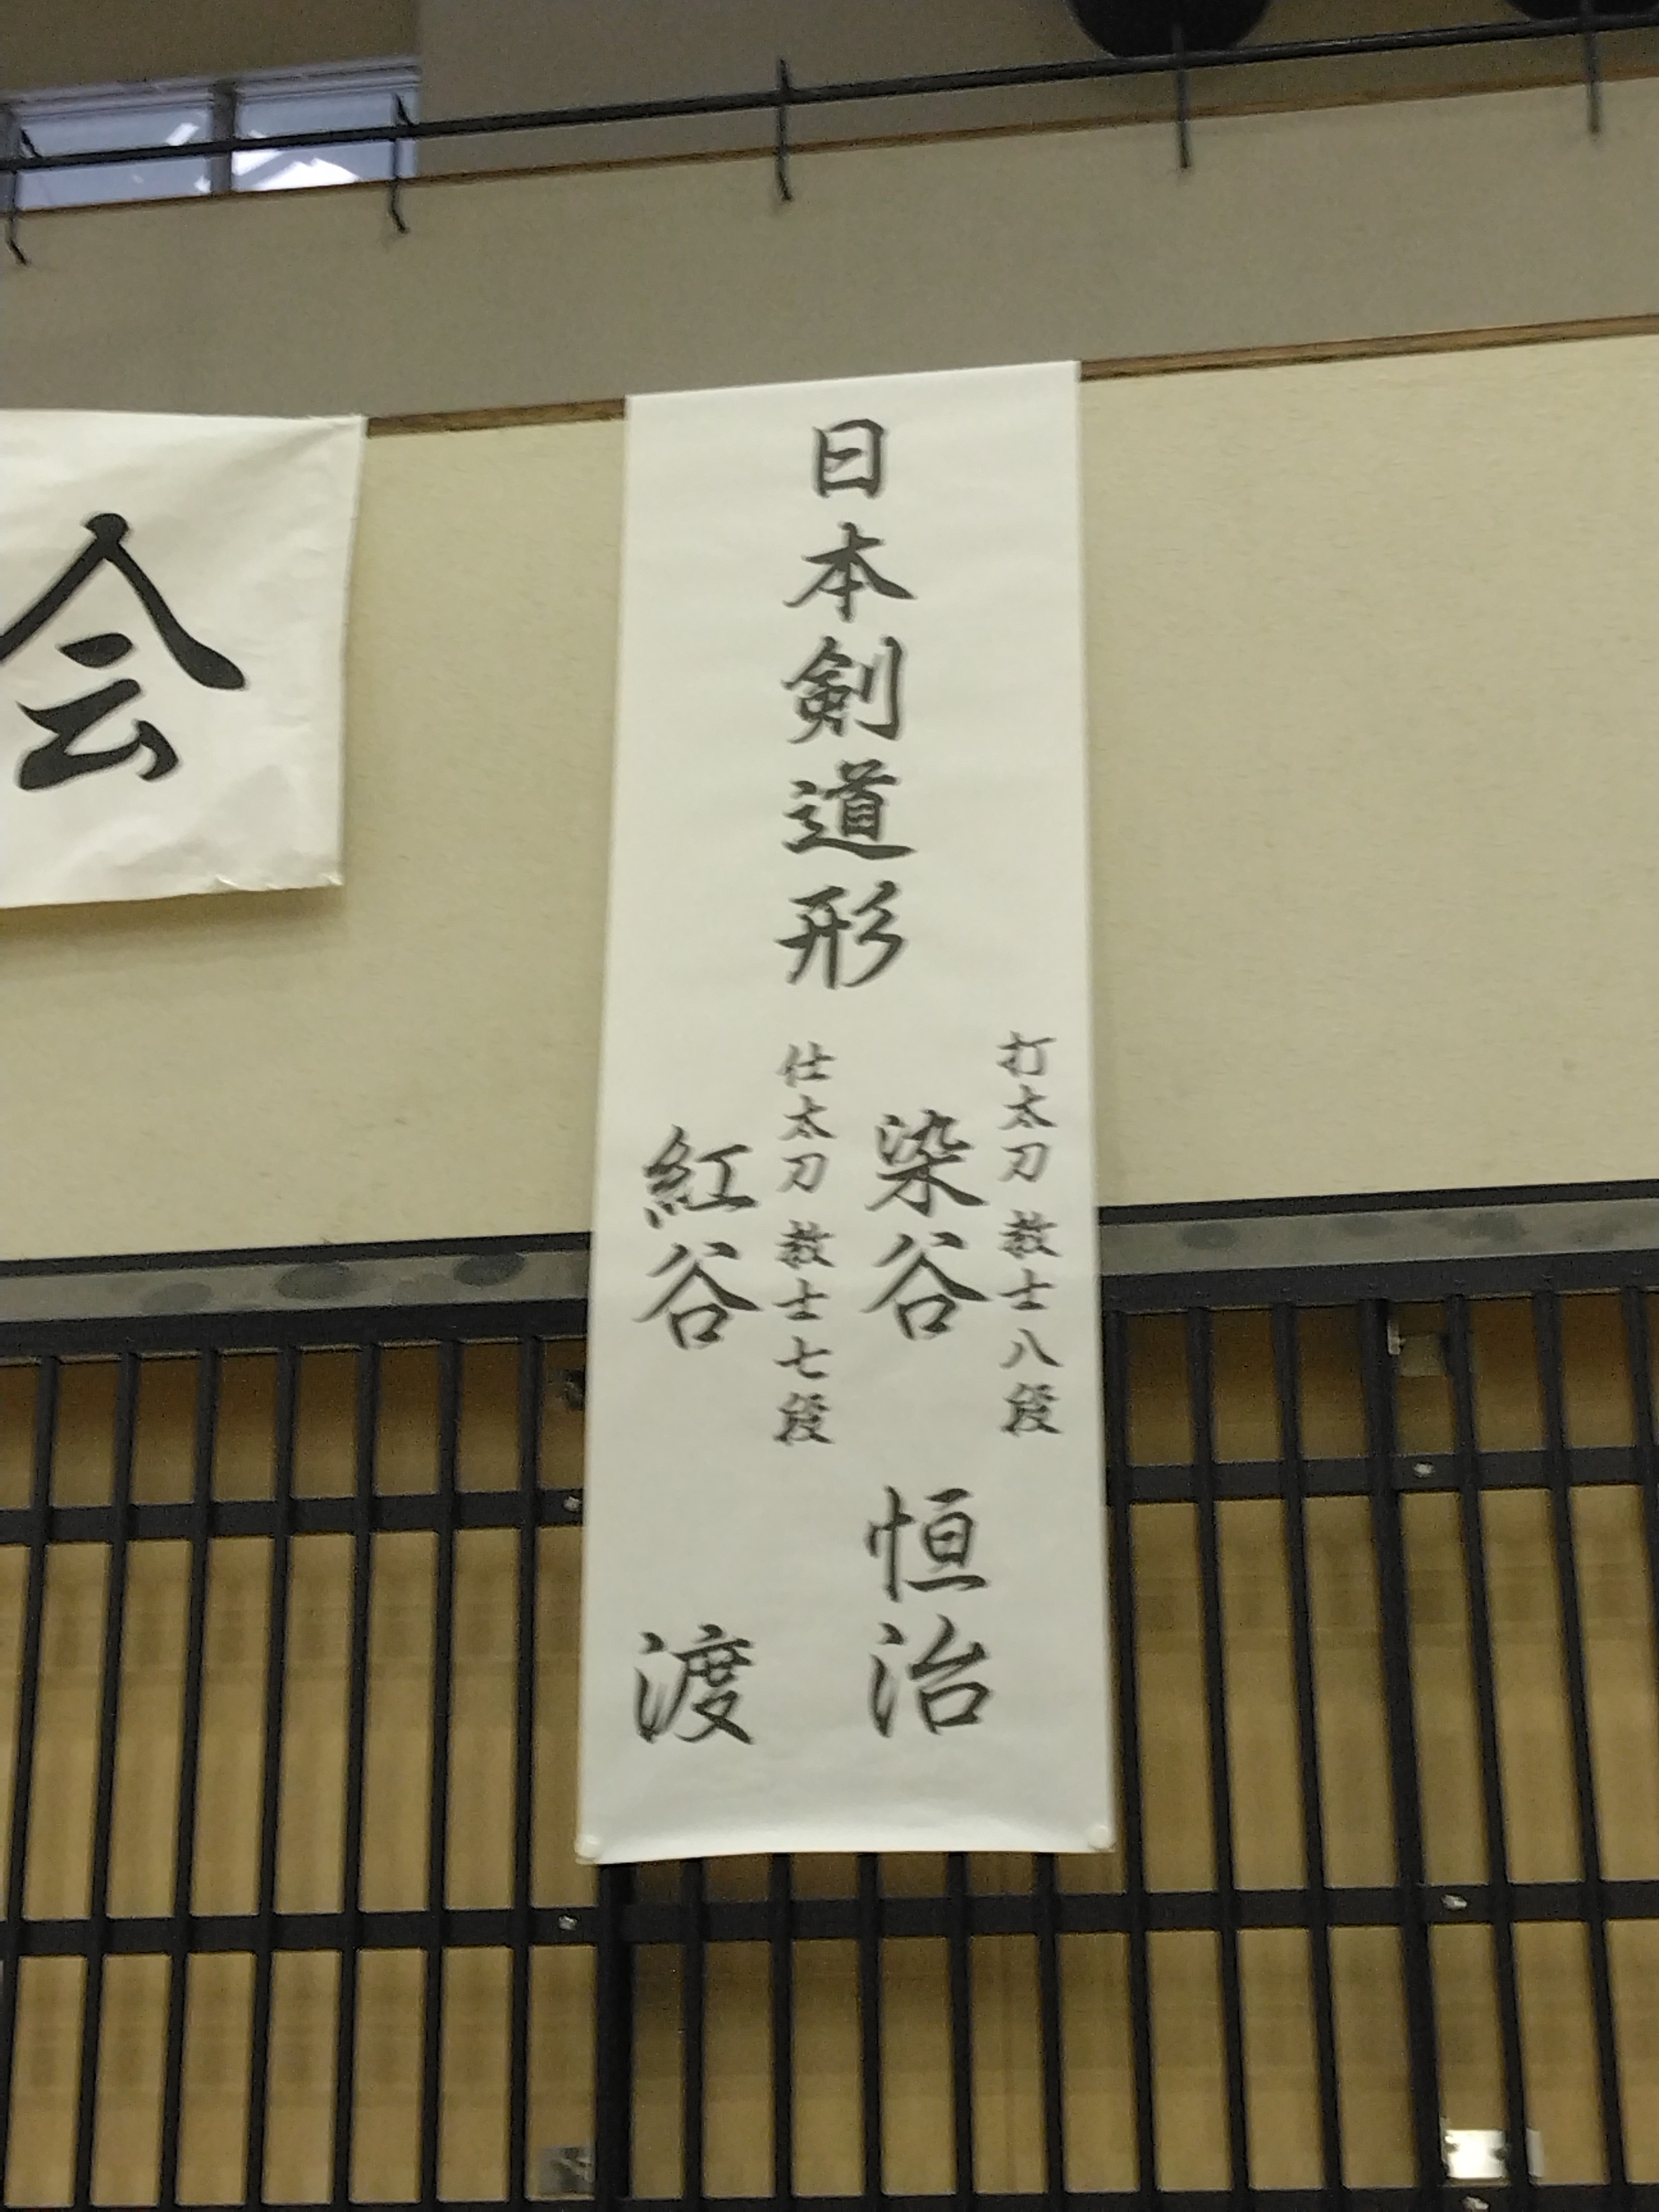 日本剣道形
打太刀 教士八段
染谷 恒治
仕太刀 教士七段
紅谷 渡
会